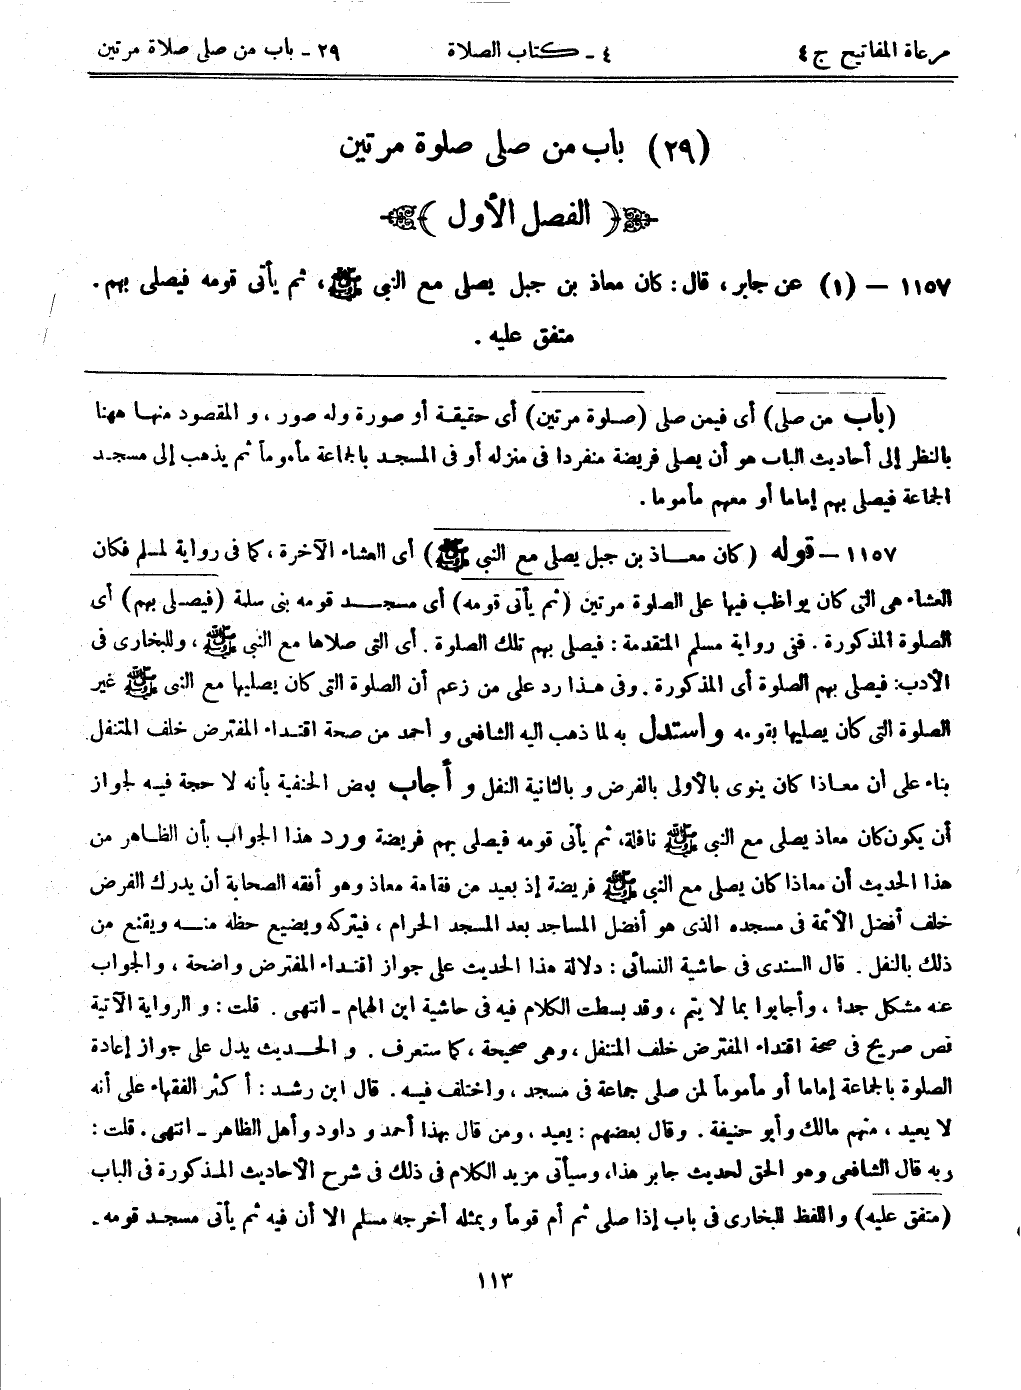 مرعاة المفاتيح ج ٤ ٤ - كتاب الصلاة ٢٩ - باب من صلى صلاة مرتين
(٢٩) باب من صلى صلوة مرتين
﴿ الفصل الأول ﴾
١١٥٧ — (١) عن جابر، قال: كان معاذ بن جبل يصلى مع النبى ﷺ، ثم يأتى قومه فيصلى بهم.
متفق عليه .
(باب من صلى) أى فيمن صلى (صلوة مرتين) أى حقيقة أو صورة وله صور، و المقصود منها ههنا
بالنظر إلى أحاديث الباب هو أن يصلى فريضة منفردا فى منزله أو فى المسجد بالجماعة مأموماً ثم يذهب إلى مسجد
الجماعة فيصلى بهم إماما أو معهم مأموما .
١١٥٧ — قوله (كان معاذ بن جبل يصلى مع النبى ﷺ) أى العشاء الآخرة، كما فى رواية لمسلم فكان
العشاء هى التى كان يواظب فيها على الصلوة مرتين (ثم يأتى قومه) أى مسجد قومه بنى سلمة (فيصلى بهم) أى
الصلوة المذكورة . ففى رواية مسلم المتقدمة : فيصلى بهم تلك الصلوة . أى التى صلاها مع النبى ﷺ، وللبخارى فى
الأدب: فيصلى بهم الصلوة أى المذكورة . وفى هذا رد على من زعم أن الصلوة التى كان يصليها مع النبى ﷺ غير
الصلوة التى كان يصليها بقومه و أستدل به لما ذهب اليه الشافعى و أحمد من صحة اقتداء المفترض خلف المتنفل
بناء على أن معاذا كان ينوى بالأولى بالفرض و بالثانية النفل و أجاب بعض الحنفية بأنه لا حجة فيه لجواز
أن يكون كان معاذ يصلى مع النبى ﷺ نافلة، ثم يأتى قومه فيصلى بهم فريضة ورد هذا الجواب بأن الظاهر من
هذا الحديث أن معاذا كان يصلى مع النبى ﷺ فريضة إذ بعيد من فقامة معاذ وهو أفقه الصحابة أن يدرك الفرض
خلف أفضل الأئمة فى مسجده الذى هو أفضل المساجد بعد المسجد الحرام، فيتركه ويضيع حظه منه ويقنع من
ذلك بالنفل . قال السندى فى حاشية النسائى : دلالة هذا الحديث على جواز اقتداء المفترض واضحة، والجواب
عنه مشكل جدا، وأجابوا بما لا يتم، وقد بسطت الكلام فيه فى حاشية ابن الهمام - انتهى . قلت : و الرواية الآتية
نص صريح فى صحة اقتداء المفترض خلف المتنفل، وهى صحيحة، كما ستعرف . و الحديث يدل على جواز إعادة
الصلوة بالجماعة إماما أو مأموماً لمن صلى جماعة فى مسجد، واختلف فيه . قال ابن رشد : أكثر الفقهاء على أنه
لا يعيد، منهم مالك وأبو حنيفة . وقال بعضهم : يعيد، ومن قال بهذا أحمد و داود وأهل الظاهر - انتهى . قلت :
وبه قال الشافعى وهو الحق لحديث جابر هذا، وسيأتى مزيد الكلام فى ذلك فى شرح الأحاديث المذكورة فى الباب
(متفق عليه) واللفظ للبخارى فى باب إذا صلى ثم أم قوماً وبمثله أخرجه مسلم الا أن فيه ثم يأتى مسجد قومه .
١١٣